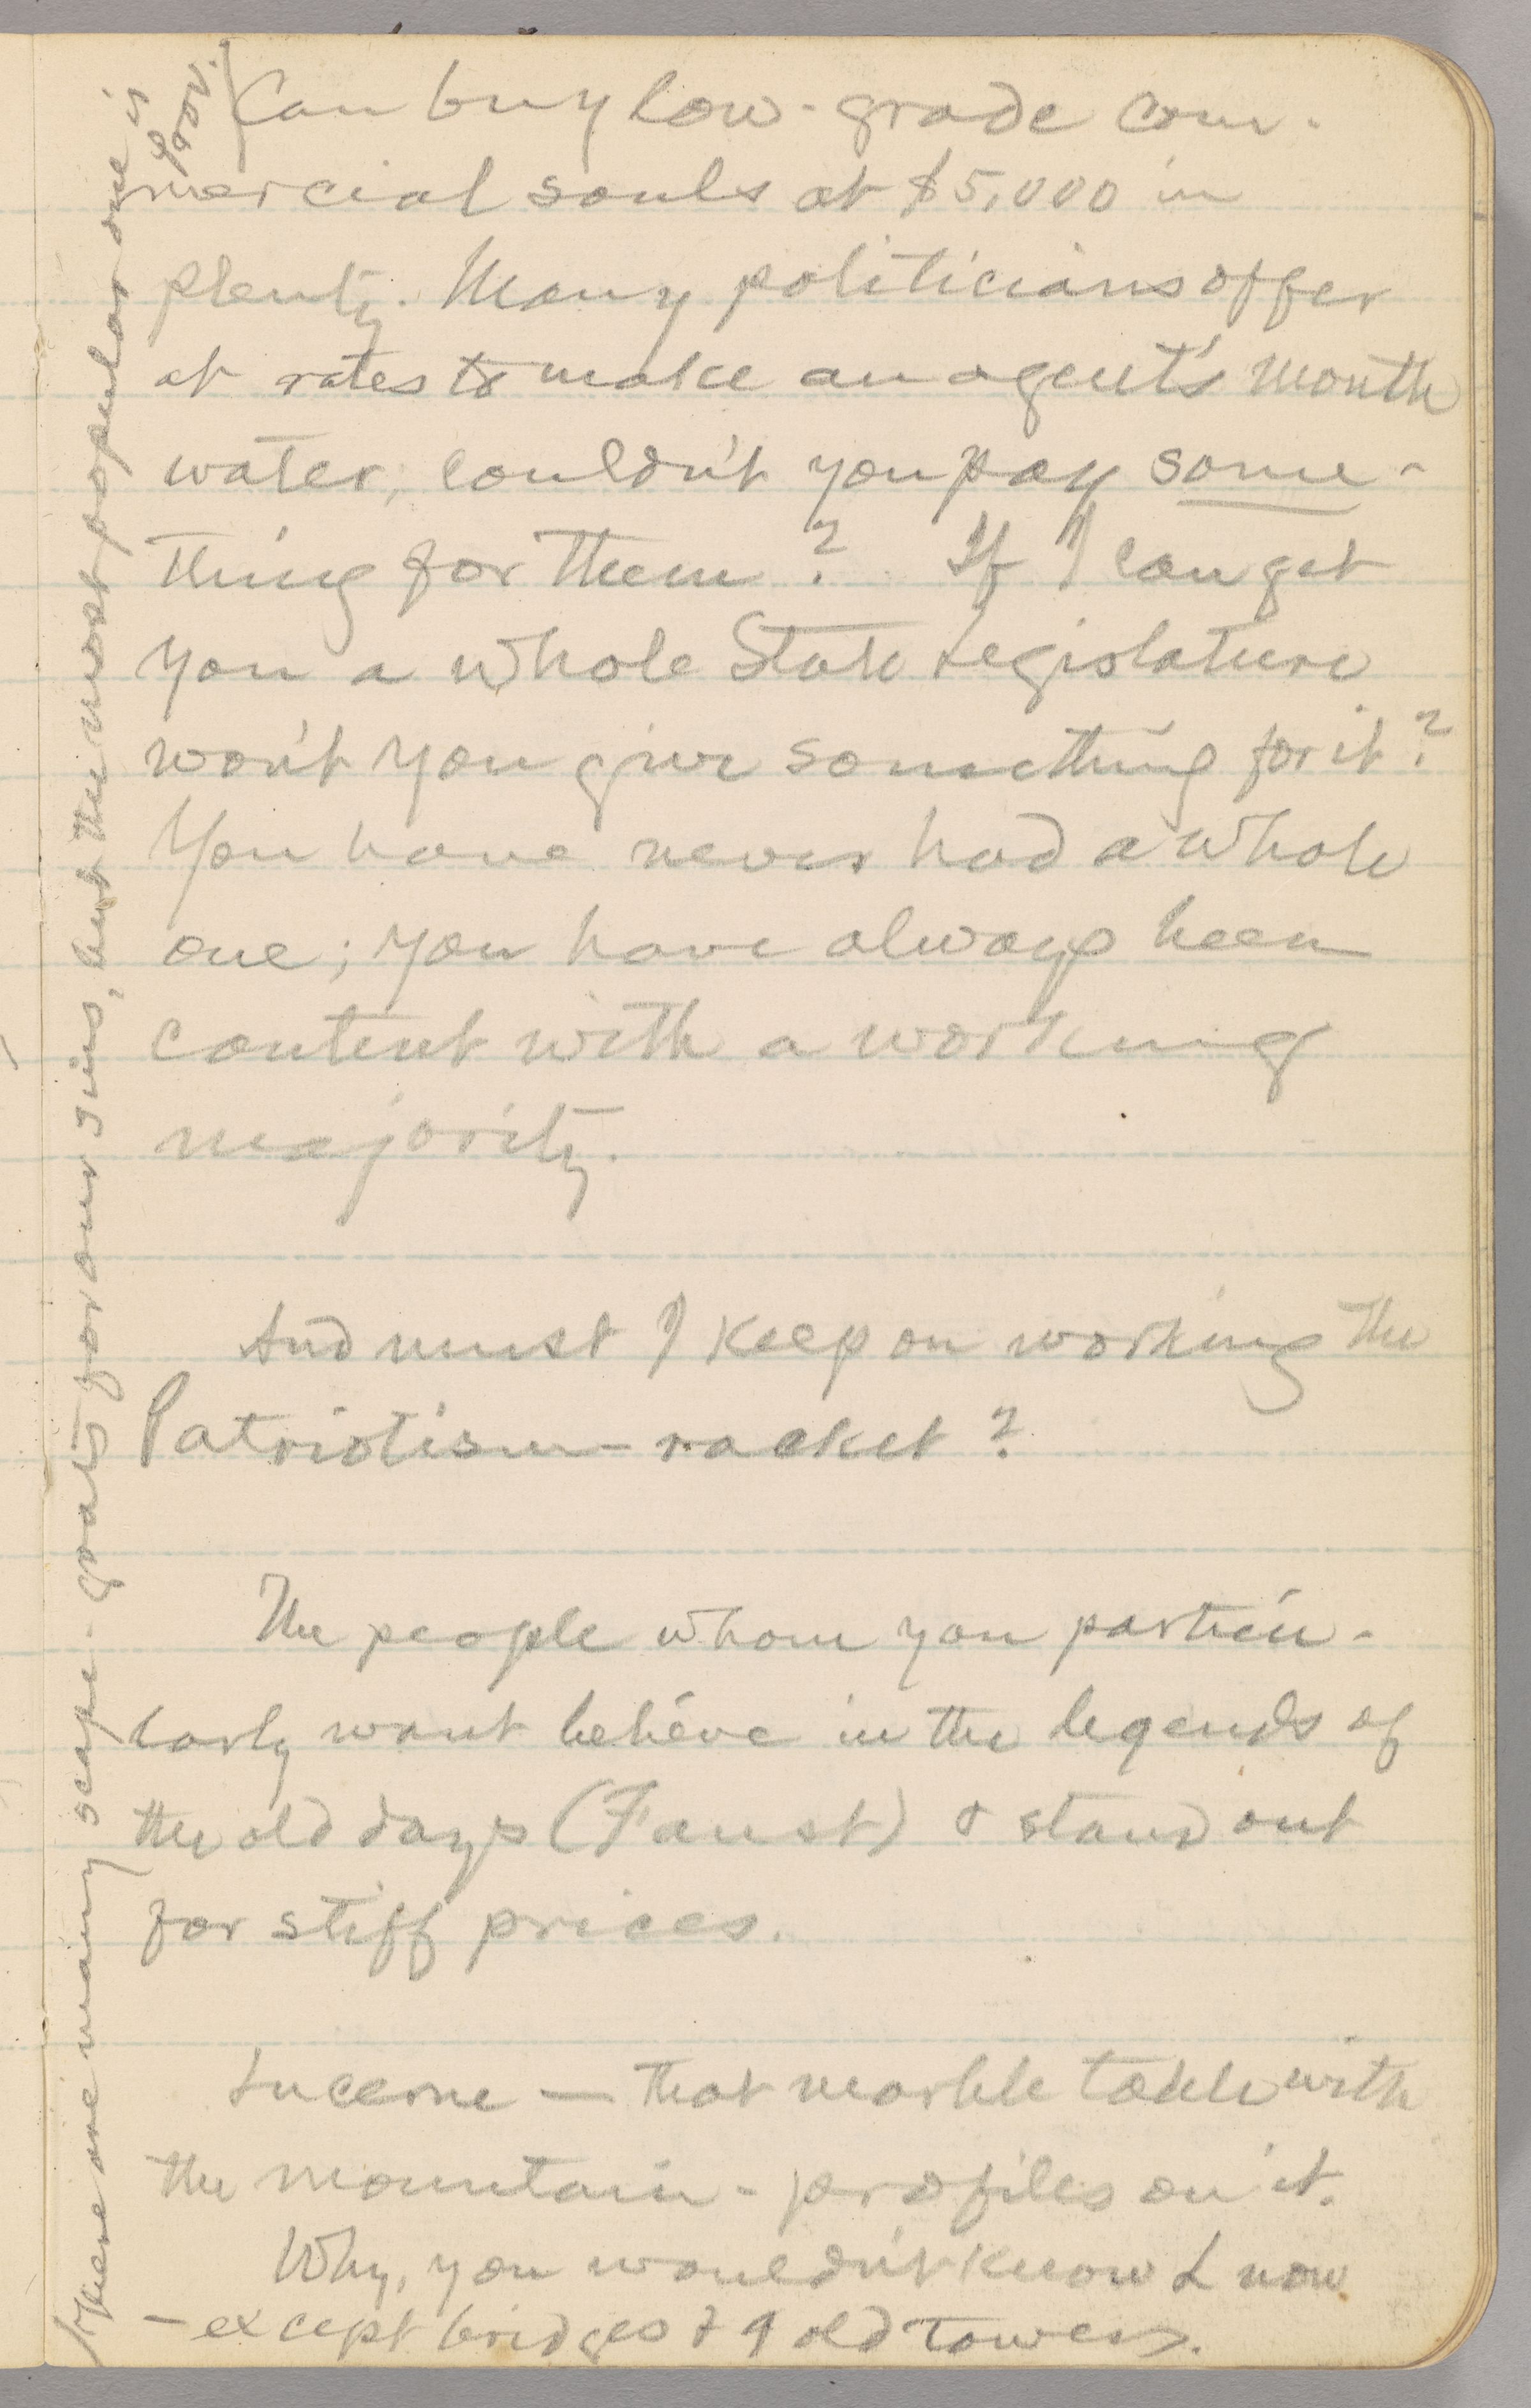 Can buy low-grade com-
mercial souls at $5,000 in
plenty. Many politicians offer
at rates to make an agent's mouth
water; couldn't you pay some-
thing for them? If I can get
you a whole State Legislature
won't you give something for it?
You have never had a whole
one; you have always been
content with a working
majority.
And must I keep on working the
Patriotism-racket?
The people whom you particu-
larly want believe in the legends of
the old days (Faust) & stand out
for stiff prices.
Lucerne — that marble table with
the mountain-profiles on it.
Why, you wouldn't know L now
— except bridges & 9 old towers.
There are many scape-goats for our sins, but the most popular one is
Prov.